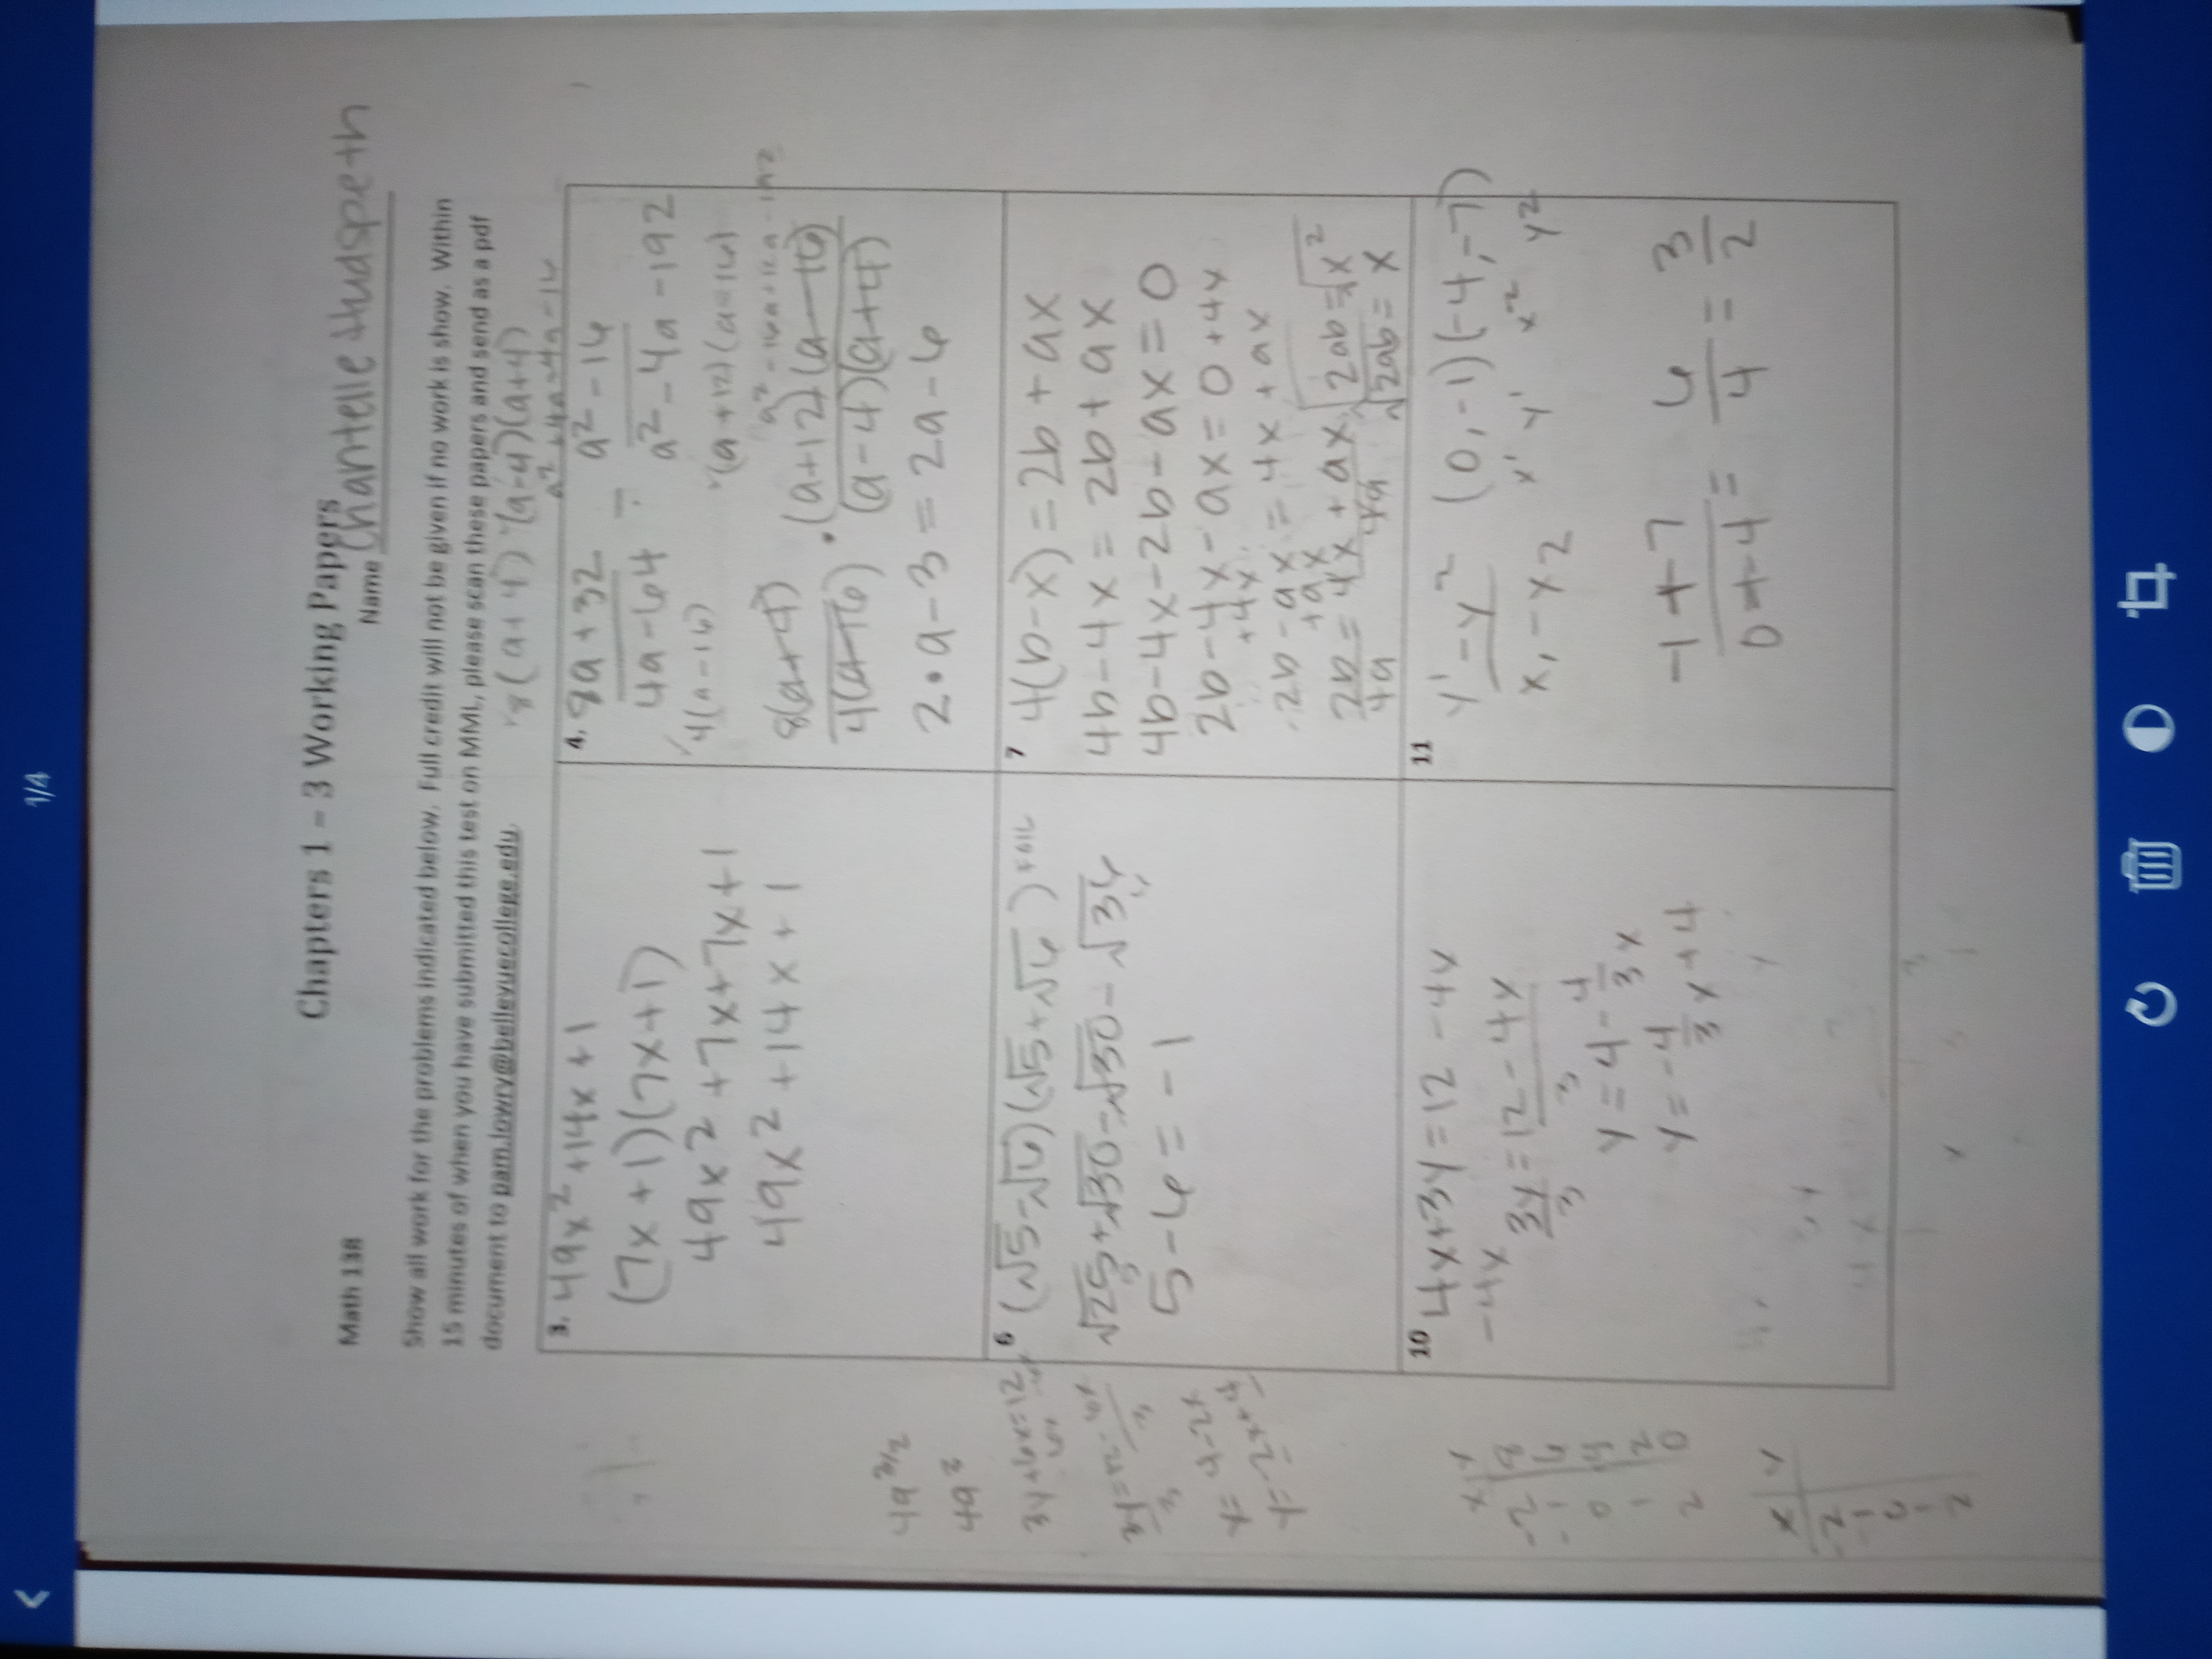 1/4
Chapters 1 – 3 Working Papers
Math 138
Name Chantelle Hudspeth
Show all work for the problems indicated below. Full credit will not be given if no work is show. Within
15 minutes of when you have submitted this test on MML, please scan these papers and send as a pdf
document to pam.lowry@bellevuecollege.edu.
8(a+4) (a-4)(a+4)
a²+4a-4a-16
3. 49x²+14x+1
(7x+1)(7x+1)
49x²+7x+7x+1
49x²+14x+1
4. 8a+32 / 4a-64 ÷ a²-16 / a²-4a-192
4(a-16)
(a+12)(a-16)
a²-16a+12a-192
8(a+4) / 4(a-16) · (a+12)(a-16) / (a-4)(a+4)
2·a-3=2a-6
4a^3/2
4a³
3y+6x=12
3y=12-6x
3 3
y=4-2x
y=-2x+4
6 (√5-√6)(√5+√6) FOIL
√25+√30-√30-√36
5-6=-1
7 4(b-x)=2b+ax
4b-4x=2b+ax
4b-4x-2b-ax=0
2b-4x-ax=0+4x
+4x
2b-ax=4x+ax
+ax
2b=4x+ax √2ab=√x²
4a 4a √2ab=x
10 4x+3y=12-4x
-4x
3y=12-4x
3 3
y=4-4/3x
y=-4/3x+4
x y
-2 8
- 6
0 4
1 2
2 0
x y
-2
-
0
1
2
11 y¹-y² (0,-1)(-4,-7)
x₁-x₂ x¹ y¹ x² y²
-1+7 / 0+4 = 6/4 = 3/2